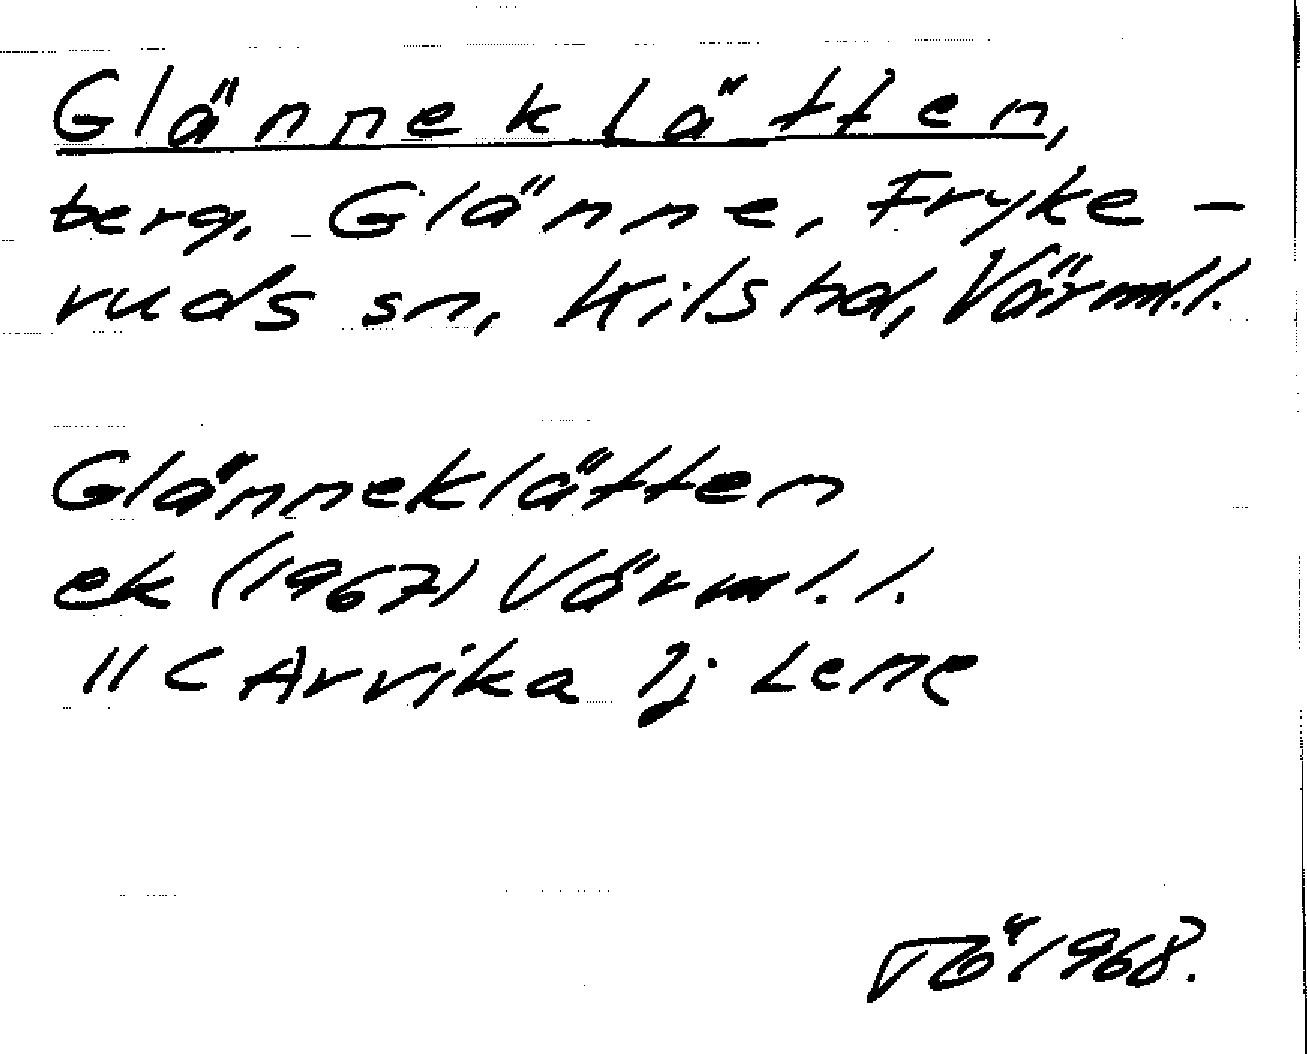 Glänneklätten,
berg, Glänne, Fryke-
ruds sn, Kils hd, Värml.l.
Glänneklätten
ek (1967) Värml.l.
11 C Arvika 2j Lene
TÖ 1968.